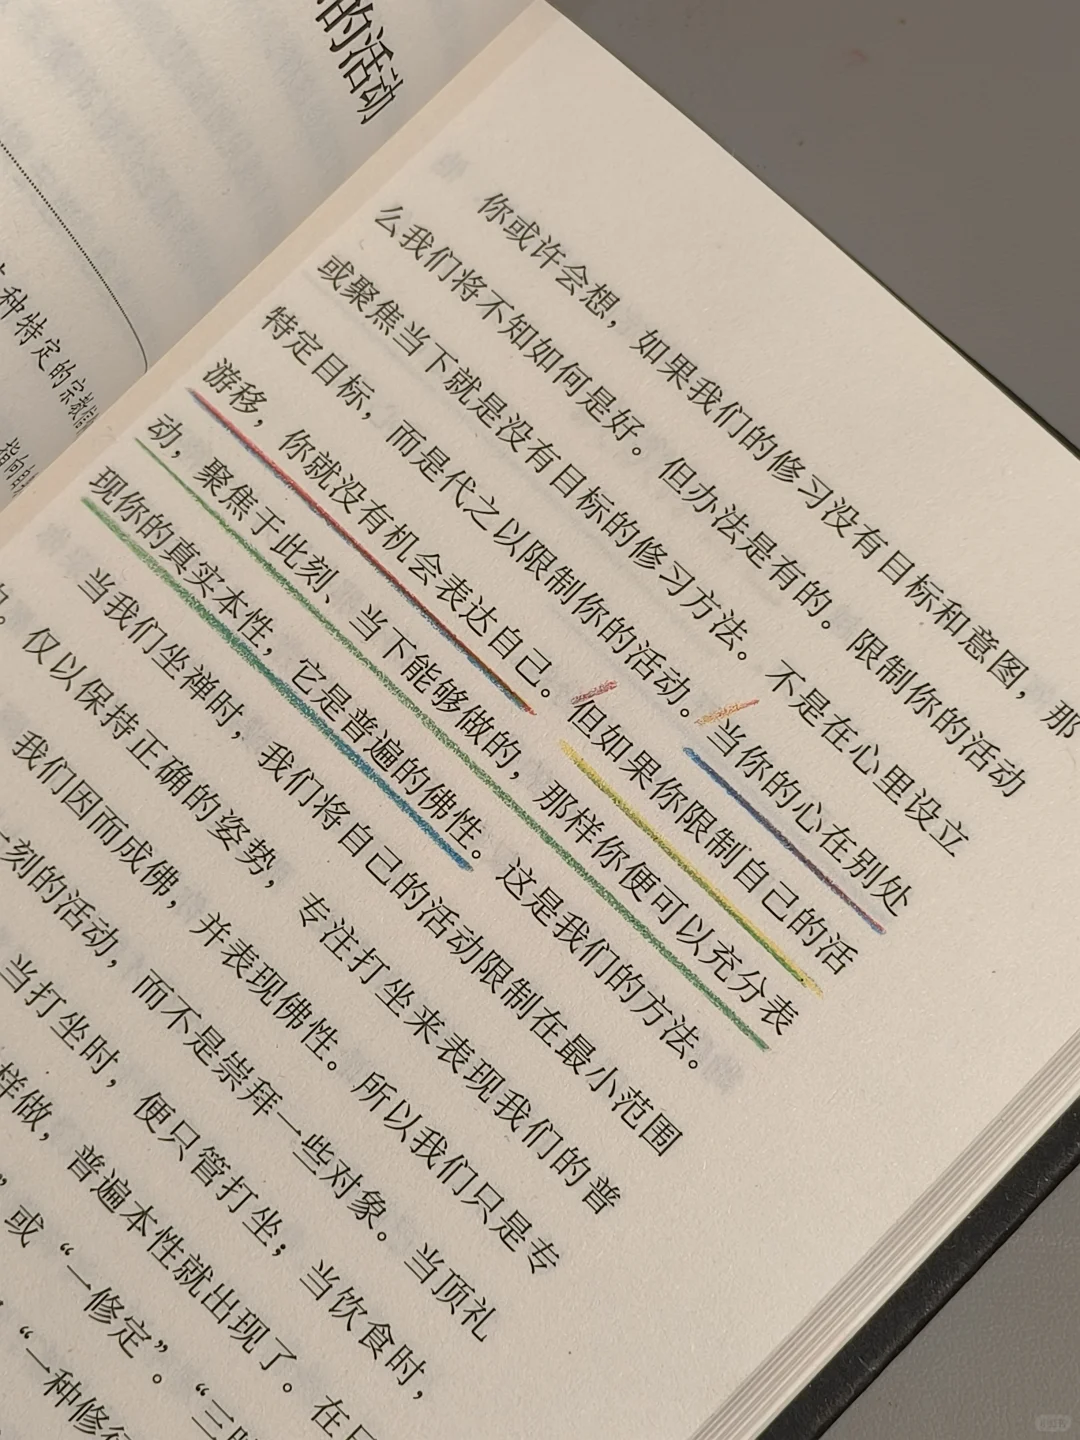 的活动
种特定的宗教
指向
你或许会想，如果我们的修习没有目标和意图，那
么我们将不知如何是好。但办法是有的。限制你的活动
或聚焦当下就是没有目标的修习方法。不是在心里设立
特定目标，而是代之以限制你的活动。当你的心在别处
游移，你就没有机会表达自己。但如果你限制自己的活
动，聚焦于此刻、当下能够做的，那样你便可以充分表
现你的真实本性，它是普遍的佛性。这是我们的方法。
当我们坐禅时，我们将自己的活动限制在最小范围
。仅以保持正确的姿势，专注打坐来表现我们的普
我们因而成佛，并表现佛性。所以我们只是专
一刻的活动，而不是崇拜一些对象。当顶礼
当打坐时，便只管打坐；当饮食时，
样做，普遍本性就出现了。在
”或“一修定”。“三
“一种修